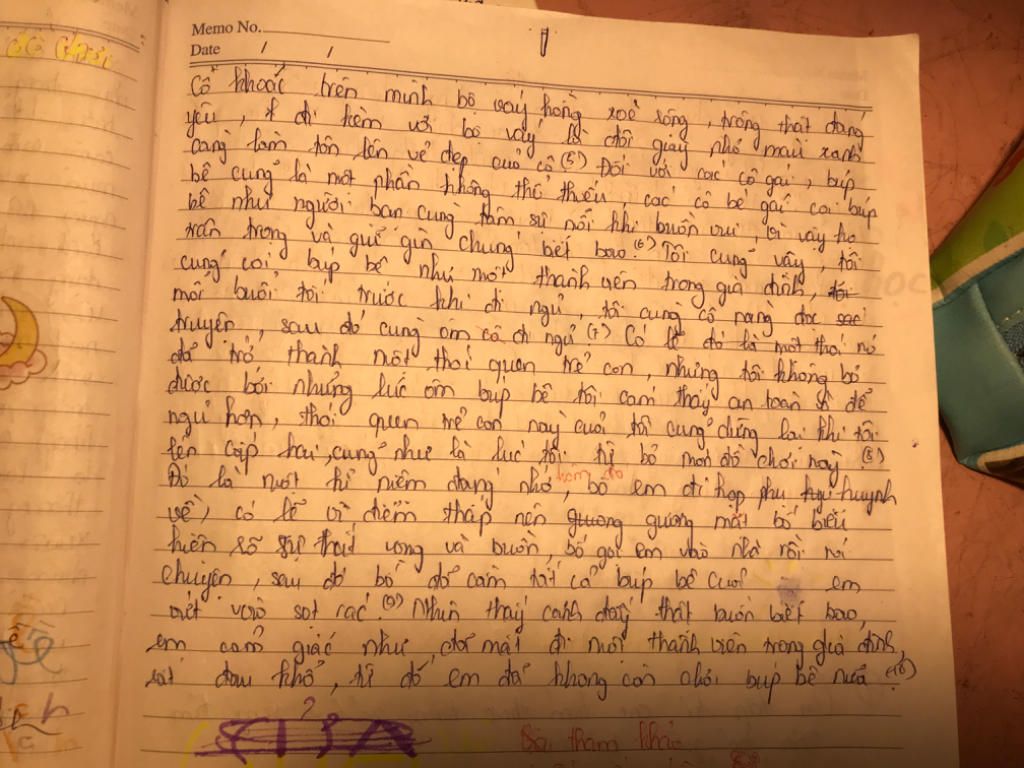 đồ chơi
Memo No.
Date / /
Cô khoác trên mình bộ váy hồng xoè rộng, trông thật đáng
yêu, đi kèm với bộ váy là đôi giày nhỏ màu xanh
càng làm tôn lên vẻ đẹp của cô (5) Đối với các cô gái, búp
bê cũng là một phần không thể thiếu, các cô bé gái coi búp
bê như người bạn cùng tâm sự nỗi khi buồn vui, vì vậy họ
trân trọng và giữ gìn chúng biết bao. (6) Tôi cũng vậy, tôi
cũng coi búp bê như một thành viên trong gia đình, tôi
mỗi buổi tối trước khi đi ngủ, tôi cùng cô nàng đọc
truyện, sau đó cùng ôm cô đi ngủ (7) Có lẽ đó là một thói nó
đã trở thành một thói quen trẻ con, nhưng tôi không bỏ
được bởi những lúc ôm búp bê tôi cảm thấy an toàn dễ
ngủ hơn, thói quen trẻ con này cuối tôi cũng dừng lại khi tôi
lên cấp hai, cũng như là lúc tôi từ bỏ món đồ chơi này (8)
Đó là một kỉ niệm đáng nhớ, hôm đó bố em đi họp phụ huynh
về, có lẽ vì điểm thấp nên gương mặt bố biểu
hiện rõ sự thất vọng và buồn, bố gọi em vào nhà rồi nói
chuyện, sau đó bố đã cầm tất cả búp bê của em
vứt vào sọt rác (9) Nhìn thấy cảnh đấy thật buồn biết bao,
em cảm giác như đã mất đi một thành viên trong gia đình,
rất đau khổ, từ đó em đã không còn chơi búp bê nữa (10)
Bài tham khảo